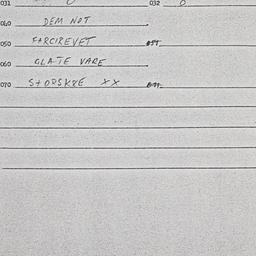 031 032 0
040 DEM NOT
050 FARCIREVET
060 GLATE VARE
070 STORSKRE XX